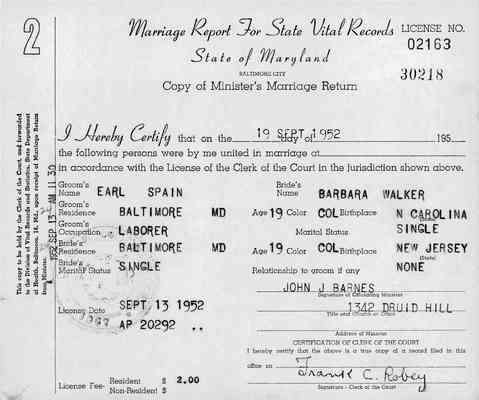 2
Marriage Report For State Vital Records LICENSE NO.
State of Maryland 02163
BALTIMORE CITY
30218
Copy of Minister's Marriage Return
This copy to be held by the Clerk of the Court, and forwarded
to the Division of Vital Records and Statistics, State Department
of Health, Baltimore, 18, Md., upon receipt of Marriage Return
from Minister.
1952 SEP 13 AM 11 30
I Hereby Certify that on the 19 SEPT. 1952 day of 195
the following persons were by me united in marriage at
in accordance with the License of the Clerk of the Court in the jurisdiction shown above.
Groom's Name EARL SPAIN Bride's Name BARBARA WALKER
Groom's Residence BALTIMORE MD Age 19 Color COL Birthplace N CAROLINA
(State)
Groom's Occupation LABORER Marital Status SINGLE
Bride's Residence BALTIMORE MD Age 19 Color COL Birthplace NEW JERSEY
(State)
Bride's Marital Status SINGLE Relationship to groom if any NONE
JOHN J BARNES
Signature of Officiating Minister
License Date SEPT. 13 1952 1342 DRUID HILL
Title and Church or Office
AP 20292 ..
Address of Minister
CERTIFICATION OF CLERK OF THE COURT
I hereby certify that the above is a true copy of a record filed in this
office on
License Fee- Resident $ 2.00
Non-Resident $
Frank C. Robey
Signature - Clerk of the Court